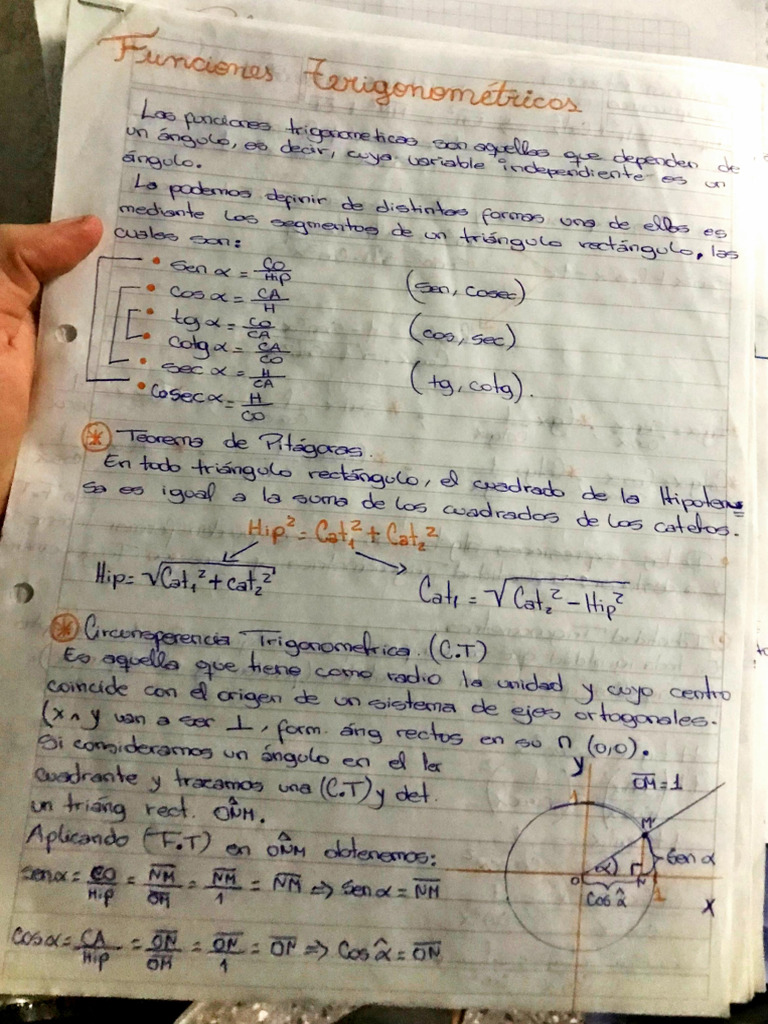 Funciones terigonométricas
Las funciones trigonometicas son aquellas que dependen de
un ángulo, es decir, cuya variable independiente es un
ángulo.
La podemos definir de distintas formas una de ellas es
mediante los segmentos de un triángulo rectángulo, las
cuales son:
• sen α = CO/Hip (sen, cosec)
• cos α = CA/H
• tg α = CO/CA (cos, sec)
• cotg α = CA/CO
• sec α = H/CA (tg, cotg).
• Cosec α = H/CO
* Teorema de Pitágoras.
En todo triángulo rectángulo, el cuadrado de la Hipotenu=
sa es igual a la suma de los cuadrados de los catetos.
Hip² = Cat₁² + Cat₂²
Hip = √Cat₁² + cat₂² Cat₁ = √Cat₂² - Hip²
* Circunferencia Trigonometrica. (C.T)
Es aquella que tiene como radio la unidad y cuyo centro
coincide con el origen de un sistema de ejes ortogonales.
(x ∧ y van a ser ⊥, form. áng rectos en su ∩ (0,0).
Si consideramos un ángulo en el 1er
cuadrante y trazamos una (C.T) y det.
un triáng rect. ON̂M.
Aplicando (F.T) en ON̂M obtenemos:
sen α = CO/Hip = N̅M̅/O̅M̅ = N̅M̅/1 = N̅M̅ ⇒ Sen α = N̅M̅
Cos α = CA/Hip = O̅N̅/O̅M̅ = O̅N̅/1 = O̅N̅ ⇒ Cos α̂ = O̅N̅
y
O̅M̅ = 1
1
M
Sen α
α
O
N
1
Cos α̂
x